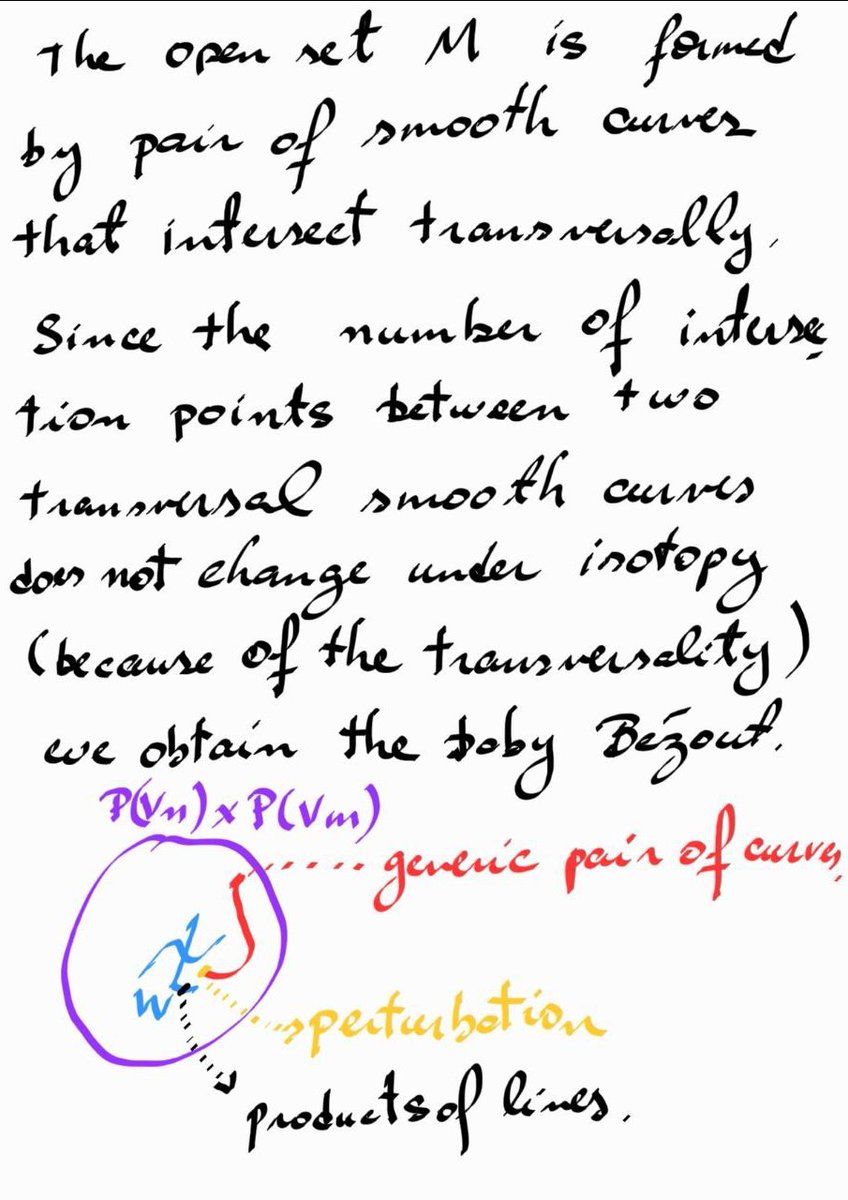 The open set M is formed
by pair of smooth curves
that intersect transversally.
Since the number of interse
tion points between two
transversal smooth curves
does not change under isotopy
(because of the transversality)
we obtain the baby Bézout.
P(Vn) x P(Vm)
generic pair of curves,
W
perturbation
products of lines.